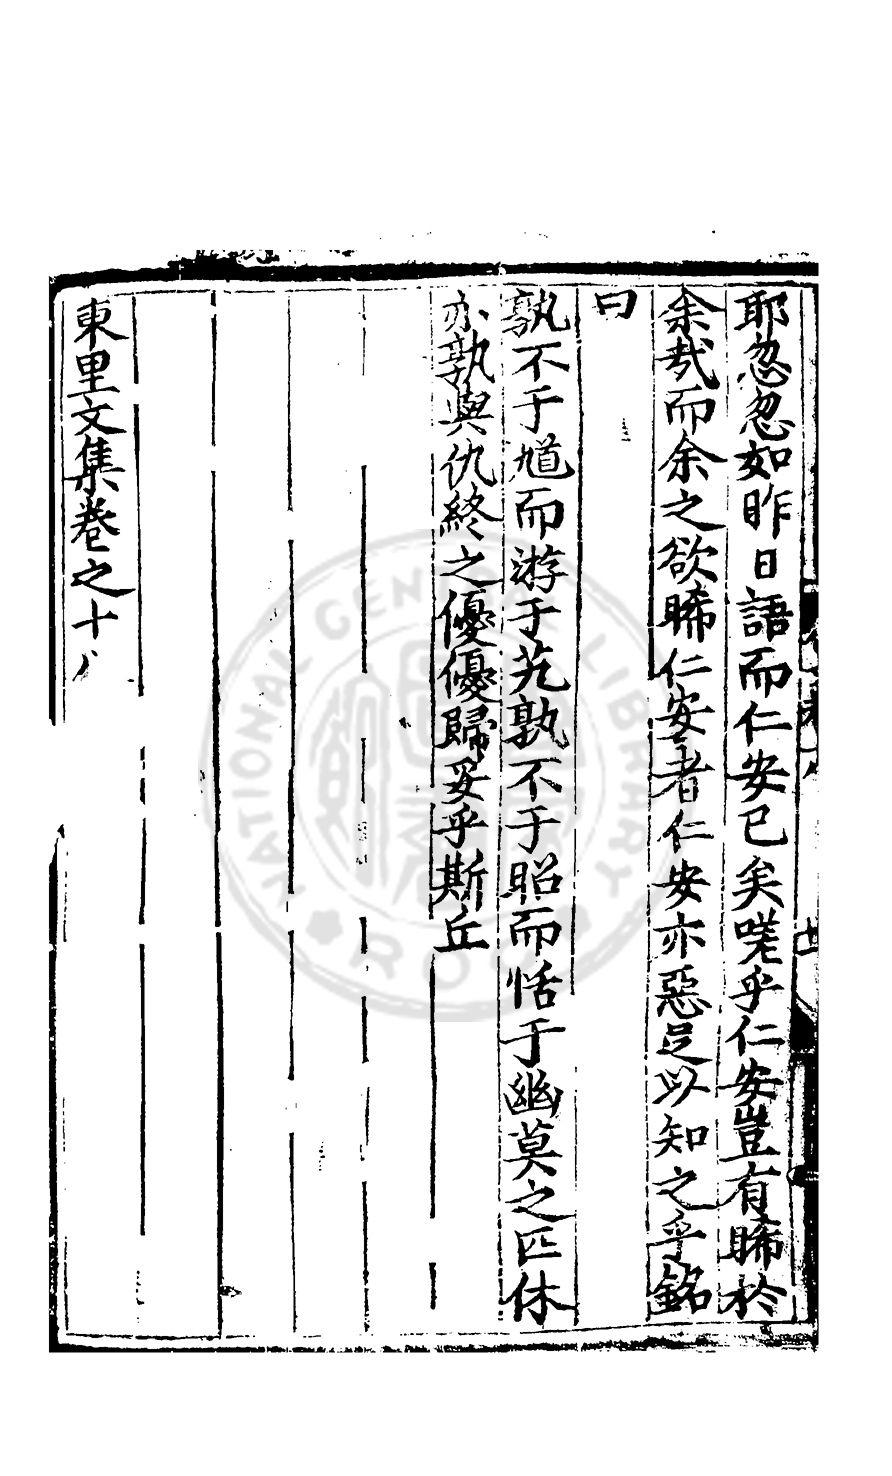 耶忽忽如昨日語而仁安已矣嗟乎仁安豈有睎於
余哉而余之欲睎仁安者仁安亦惡足以知之乎銘
曰
孰不于馗而游于艽孰不于昭而恬于幽莫之匹休
亦孰與仇終之優優歸妥乎斯丘
東里文集卷之十八
NATIONAL CENTRAL LIBRARY
R.O.C